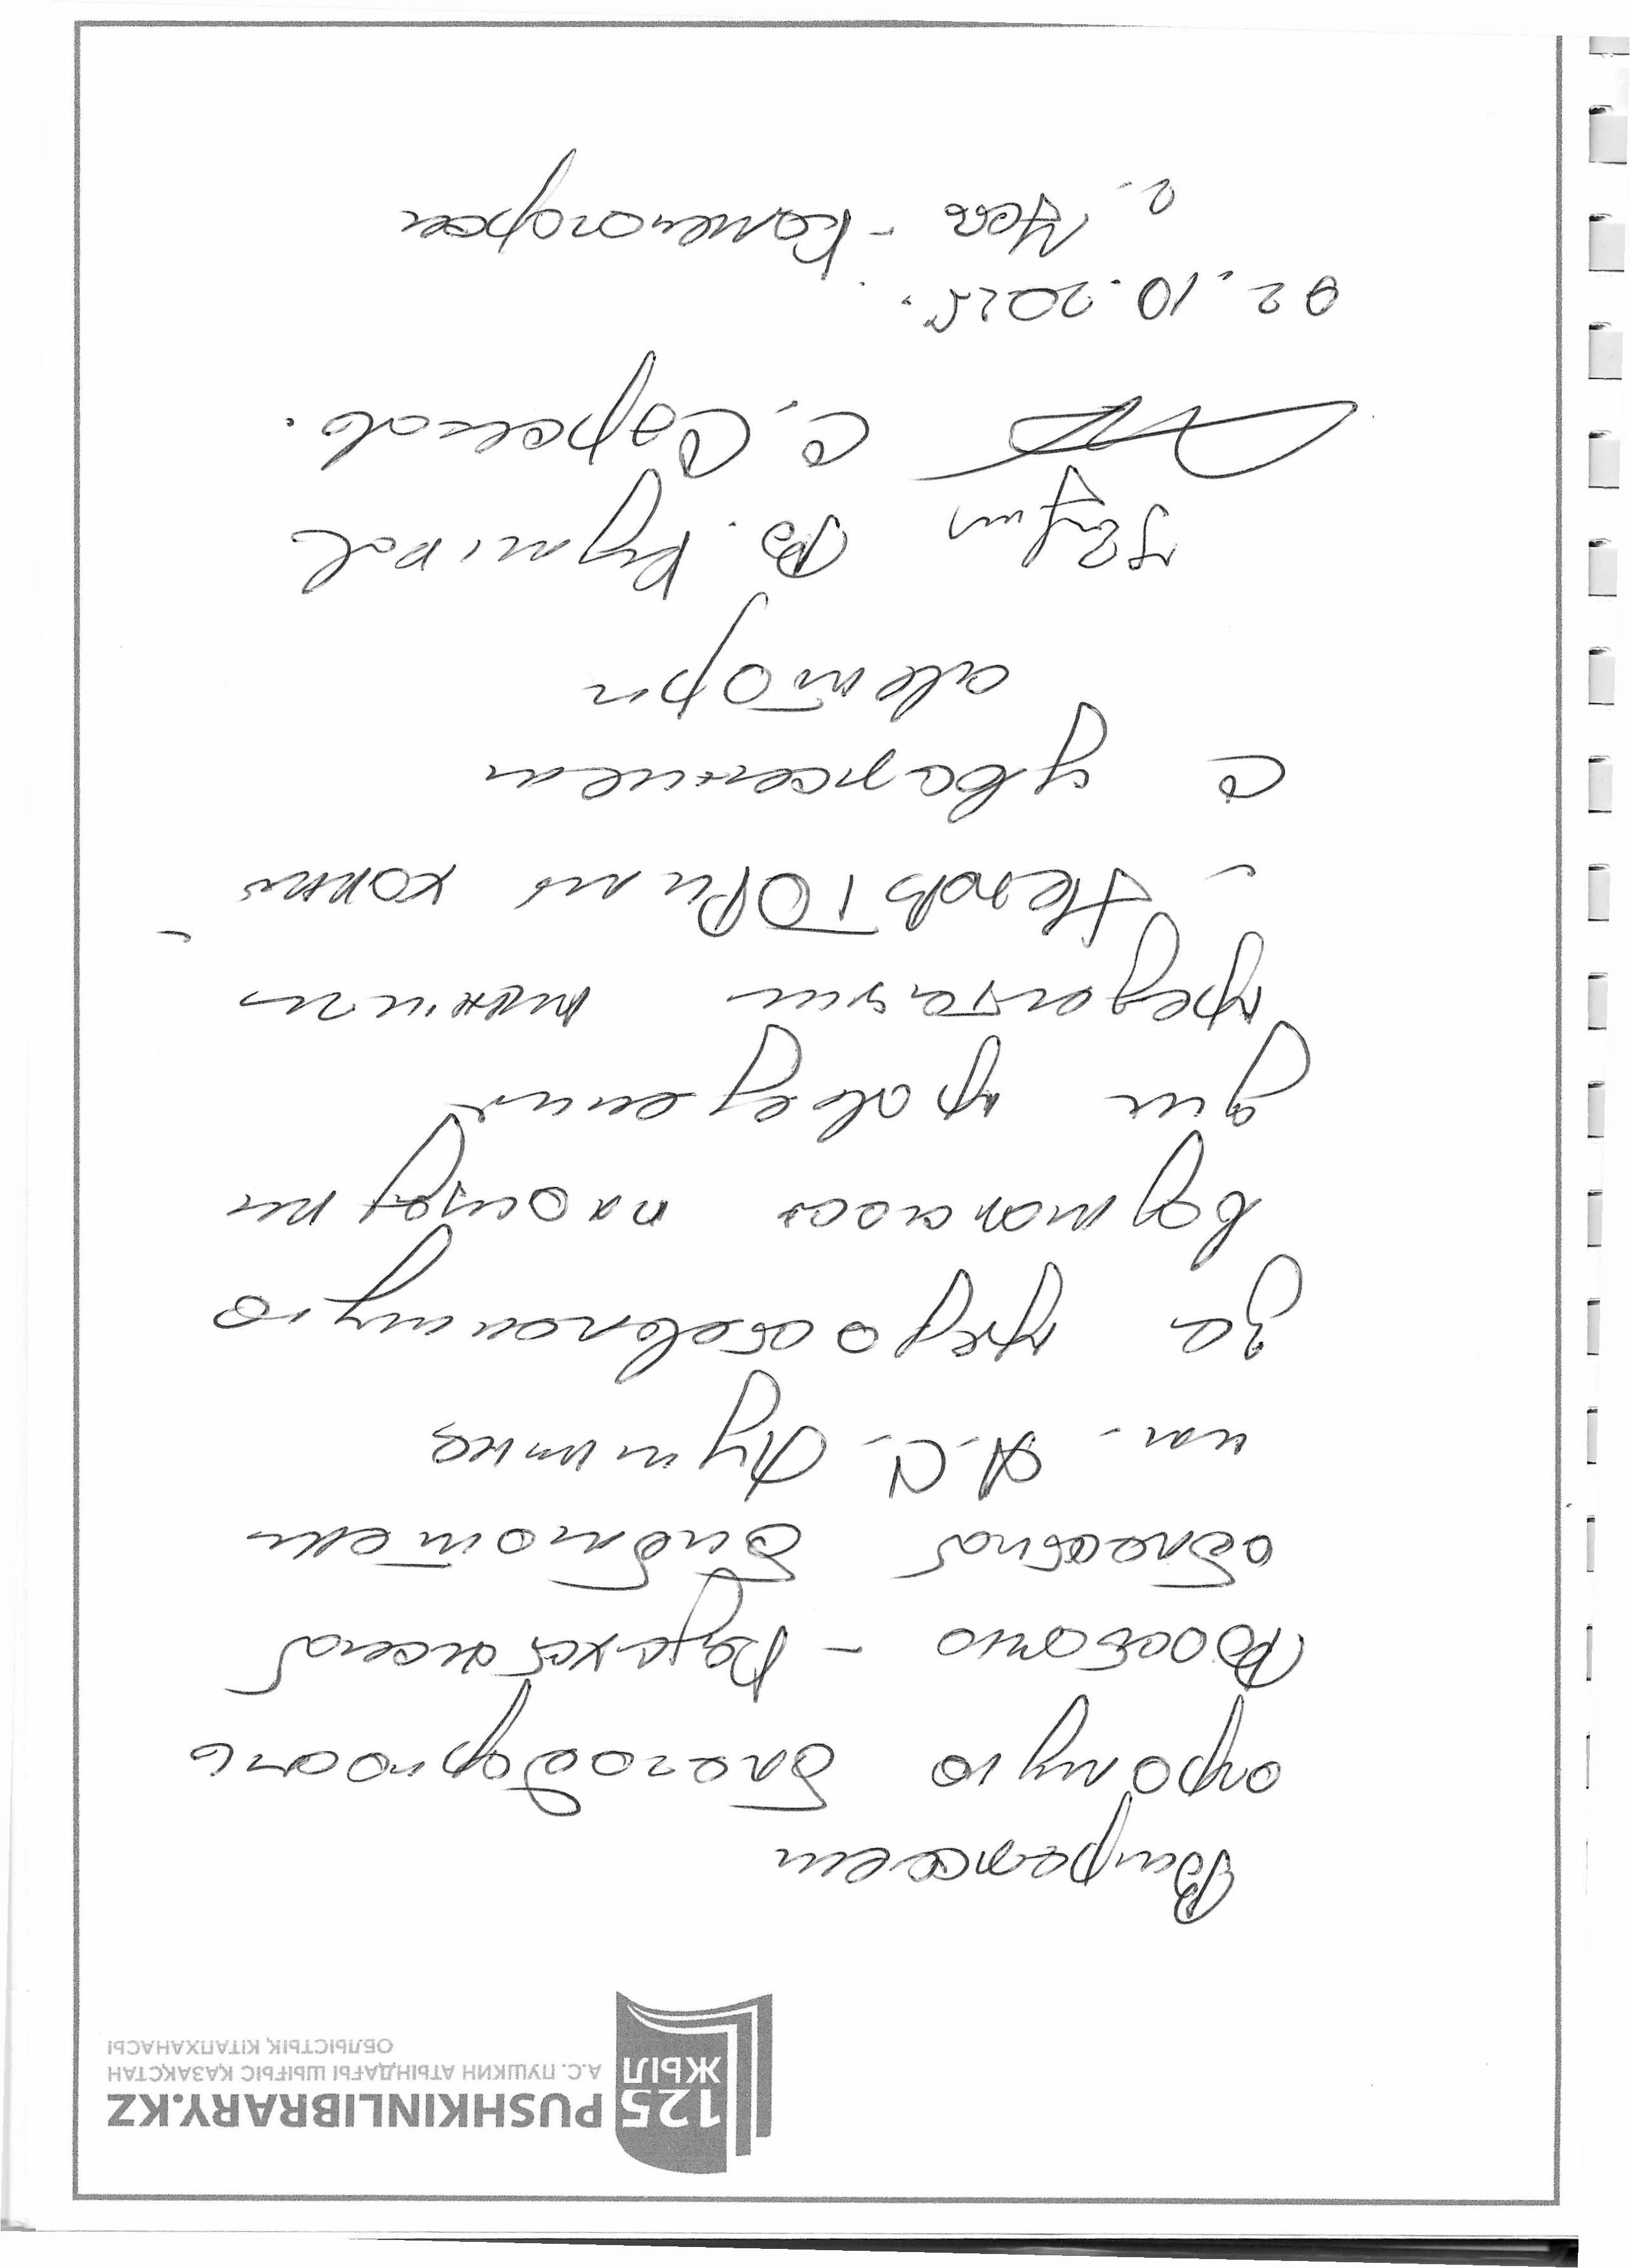 125 ЖЫЛ
PUSHKINLIBRARY.KZ
А.С. ПУШКИН АТЫНДАҒЫ ШЫҒЫС ҚАЗАҚСТАН
ОБЛЫСТЫҚ КІТАПХАНАСЫ
Выражаем
огромную благодарность
Восточно - Казахстанской
областной библиотеки
им. А.С. Пушкина
за предоставленную
возможность площадки
для проведения
презентации книги
"НеповТОРимый хоккей"
С уважением
авторы
С. Сарсенов.
02.10.2025.
г. Усть - Каменогорск